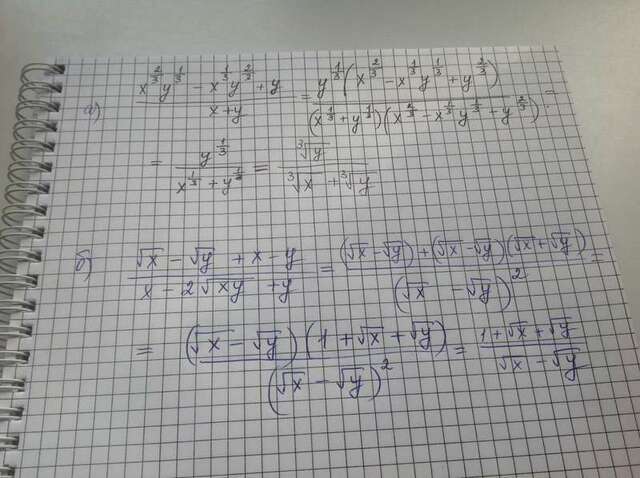 а) \frac{x^{\frac{2}{3}}y^{\frac{1}{3}} - x^{\frac{1}{3}}y^{\frac{2}{3}} + y}{x+y} = \frac{y^{\frac{1}{3}}(x^{\frac{2}{3}} - x^{\frac{1}{3}}y^{\frac{1}{3}} + y^{\frac{2}{3}})}{(x^{\frac{1}{3}} + y^{\frac{1}{3}})(x^{\frac{2}{3}} - x^{\frac{1}{3}}y^{\frac{1}{3}} + y^{\frac{2}{3}})} =
= \frac{y^{\frac{1}{3}}}{x^{\frac{1}{3}} + y^{\frac{1}{3}}} = \frac{\sqrt[3]{y}}{\sqrt[3]{x} + \sqrt[3]{y}}
б) \frac{\sqrt{x} - \sqrt{y} + x - y}{x - 2\sqrt{xy} + y} = \frac{(\sqrt{x} - \sqrt{y}) + (\sqrt{x} - \sqrt{y})(\sqrt{x} + \sqrt{y})}{(\sqrt{x} - \sqrt{y})^2} =
= \frac{(\sqrt{x} - \sqrt{y})(1 + \sqrt{x} + \sqrt{y})}{(\sqrt{x} - \sqrt{y})^2} = \frac{1 + \sqrt{x} + \sqrt{y}}{\sqrt{x} - \sqrt{y}}